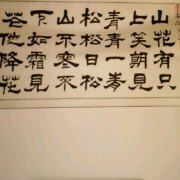 山上青松山下花
花笑青松不如他
有朝一日寒霜降
只見青松不見花